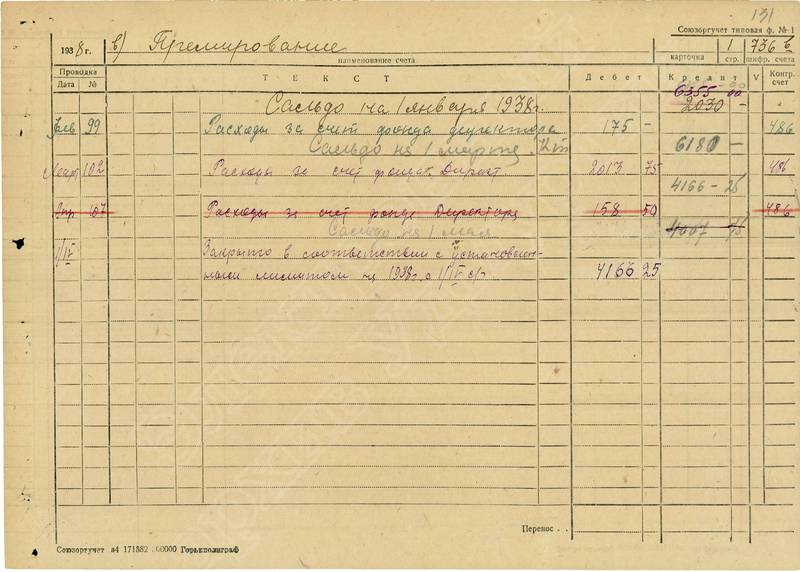 131
Союзоргучет типовая ф. №1
1938 г. в) Премирование 1 736 б
наименование счета карточка стр. шифр. счета
Проводка Т Е К С Т Дебет Кредит V Контр. счет
Дата №
6355 00
Сальдо на 1 января 1938 г. 2030 -
Фев 99 Расходы за счет фонда директора 175 - 486
Сальдо на 1 марта 6180 -
Март 102 Расходы за счет фонда Директ. 2013 75 486
4166 - 25
Апр 107 Расходы за счет фонда Директора 158 50 486
Сальдо на 1 мая 4007 75
1/IV Закрыто в соответствии с установлен-
ным лимитом на 1938 г. с 1/IV с/г 4166 25
Перенос . .
Союзоргучет 171882 Горьк­полиграф